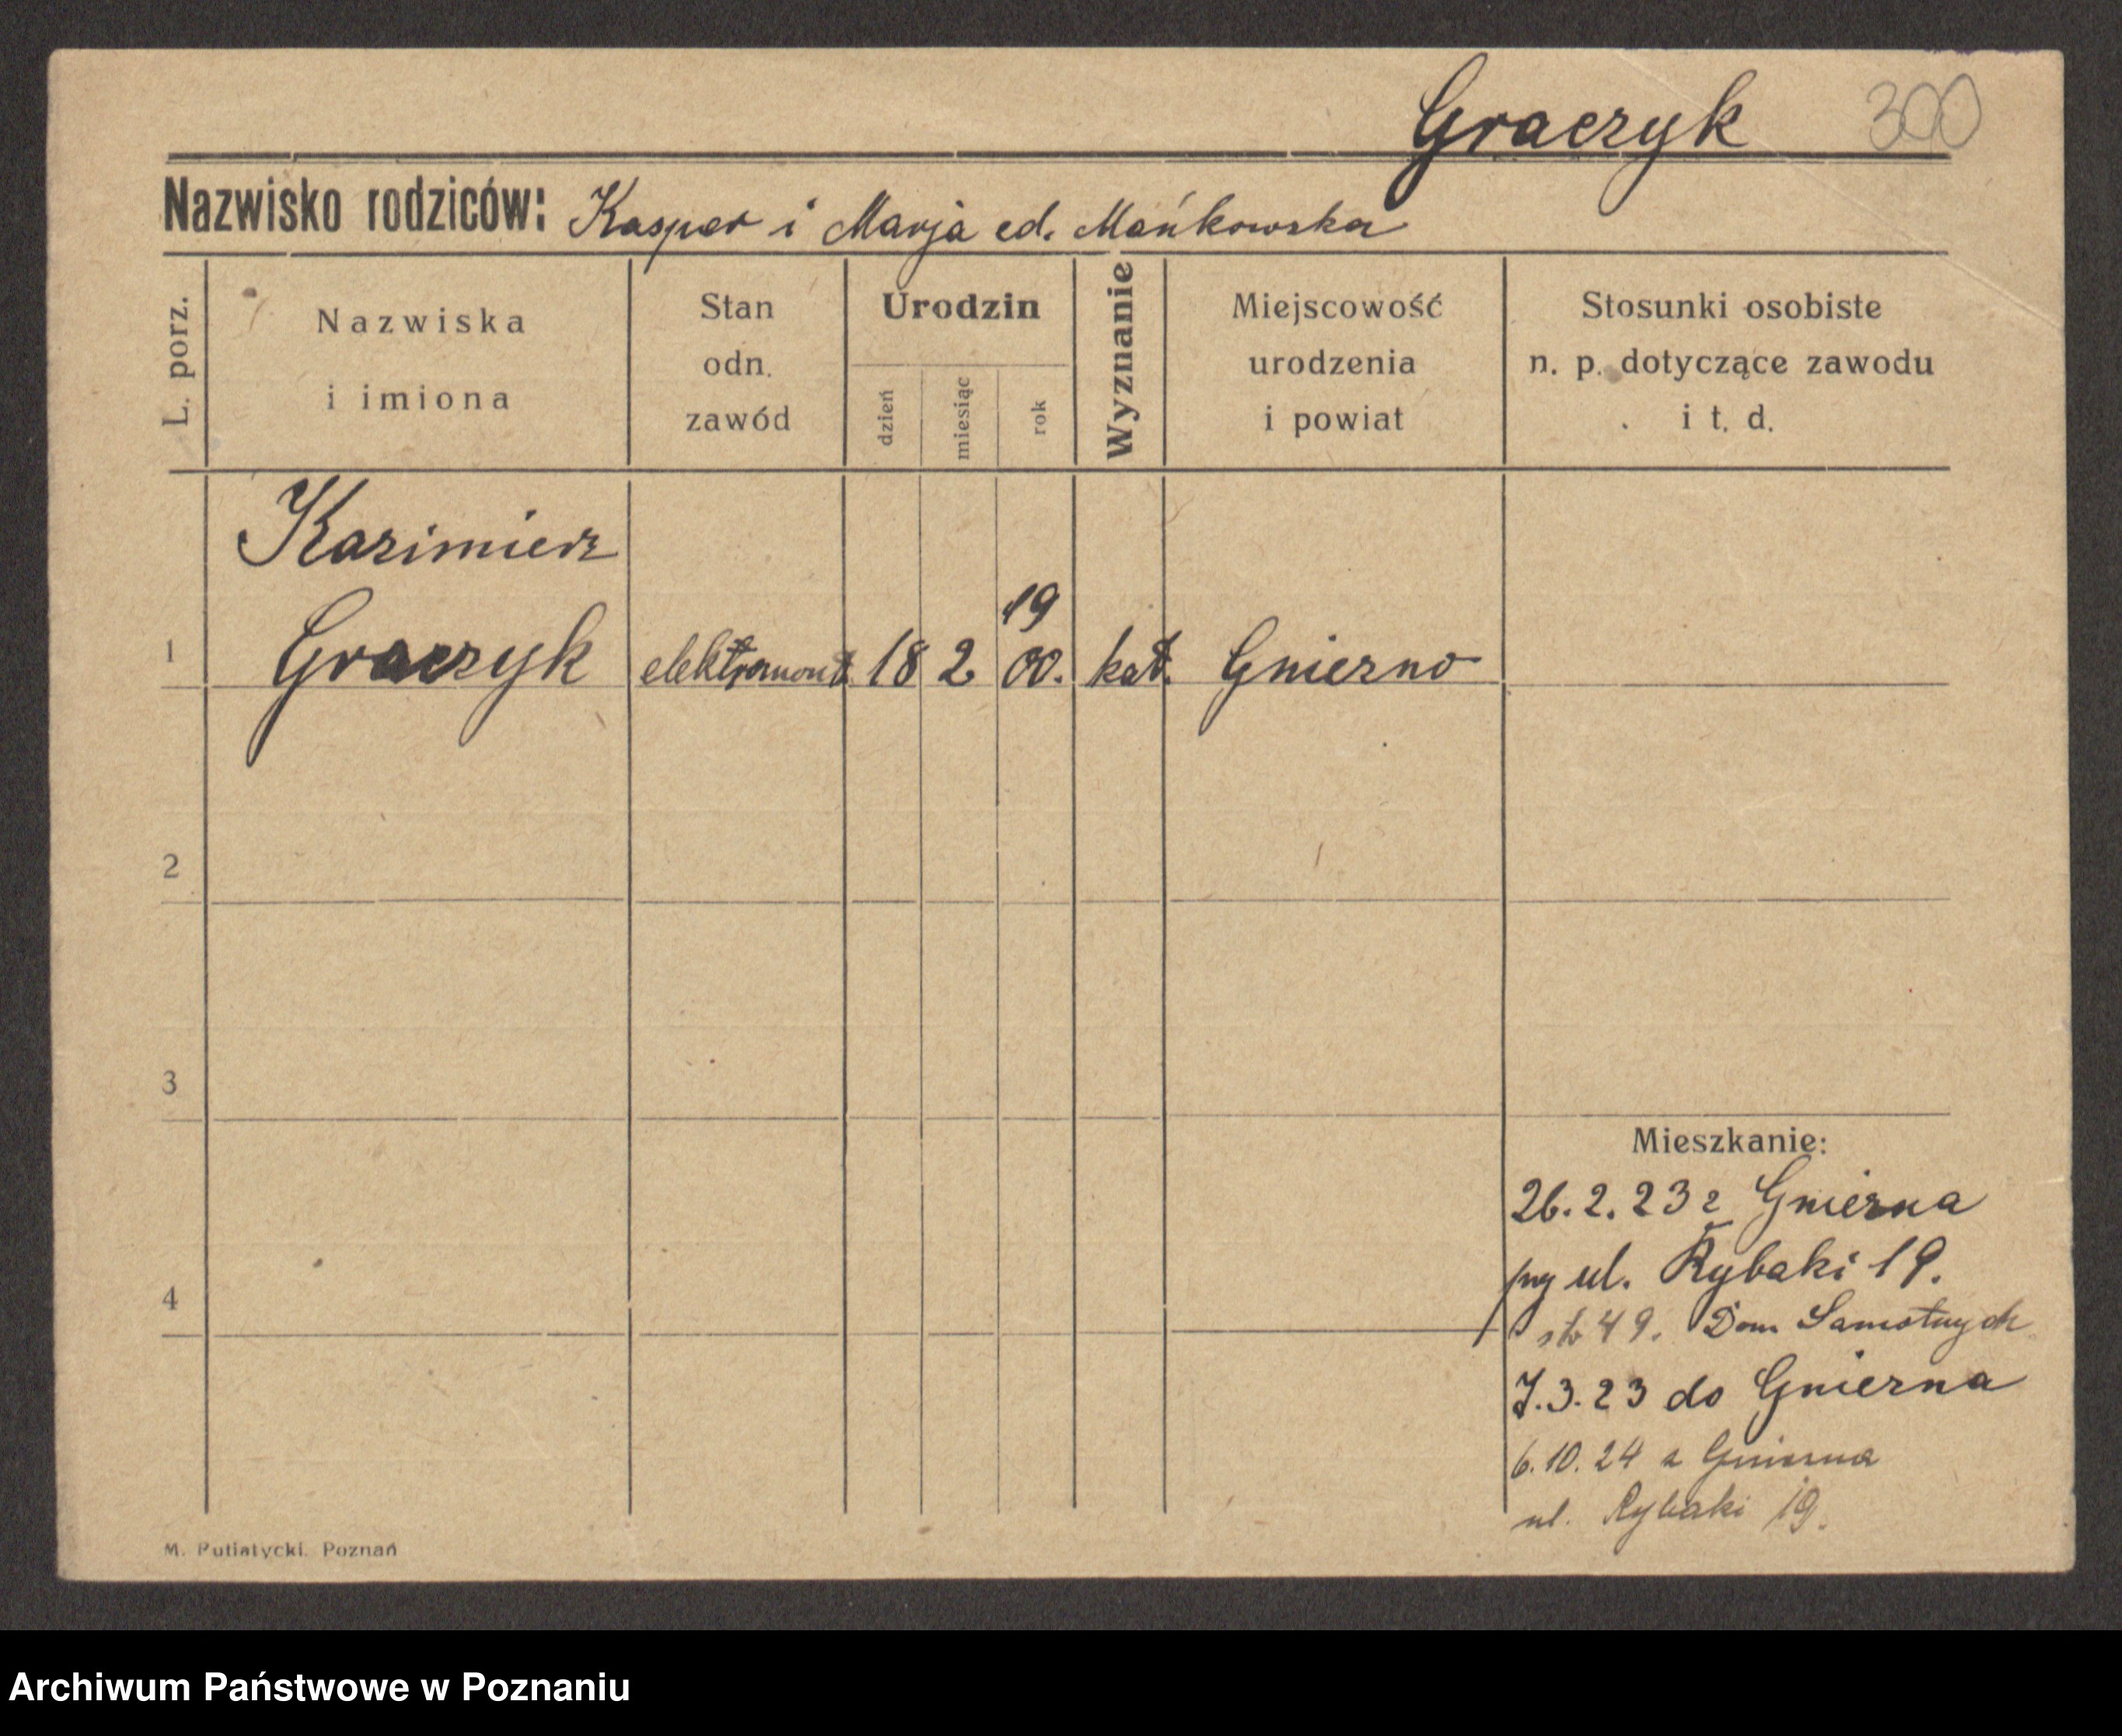 Graczyk 300
Nazwisko rodziców: Kasper i Marja cd. Mańkowska
L. porz.
Nazwiska
i imiona
Stan
odn.
zawód
Urodzin
dzień
miesiąc
rok
Wyznanie
Miejscowość
urodzenia
i powiat
Stosunki osobiste
n. p. dotyczące zawodu
i t. d.
Kazimierz
19
1 Graczyk elektromont. 18 2 00. kat. Gniezno
2
3
Mieszkanie:
26.2.23 z Gniezna
ul. Rybaki 19.
4
49. Dom Samotnych
7.3.23 do Gniezna
6.10.24 z Gniezna
ul. Rybaki 19.
M. Putiatycki. Poznań
Archiwum Państwowe w Poznaniu